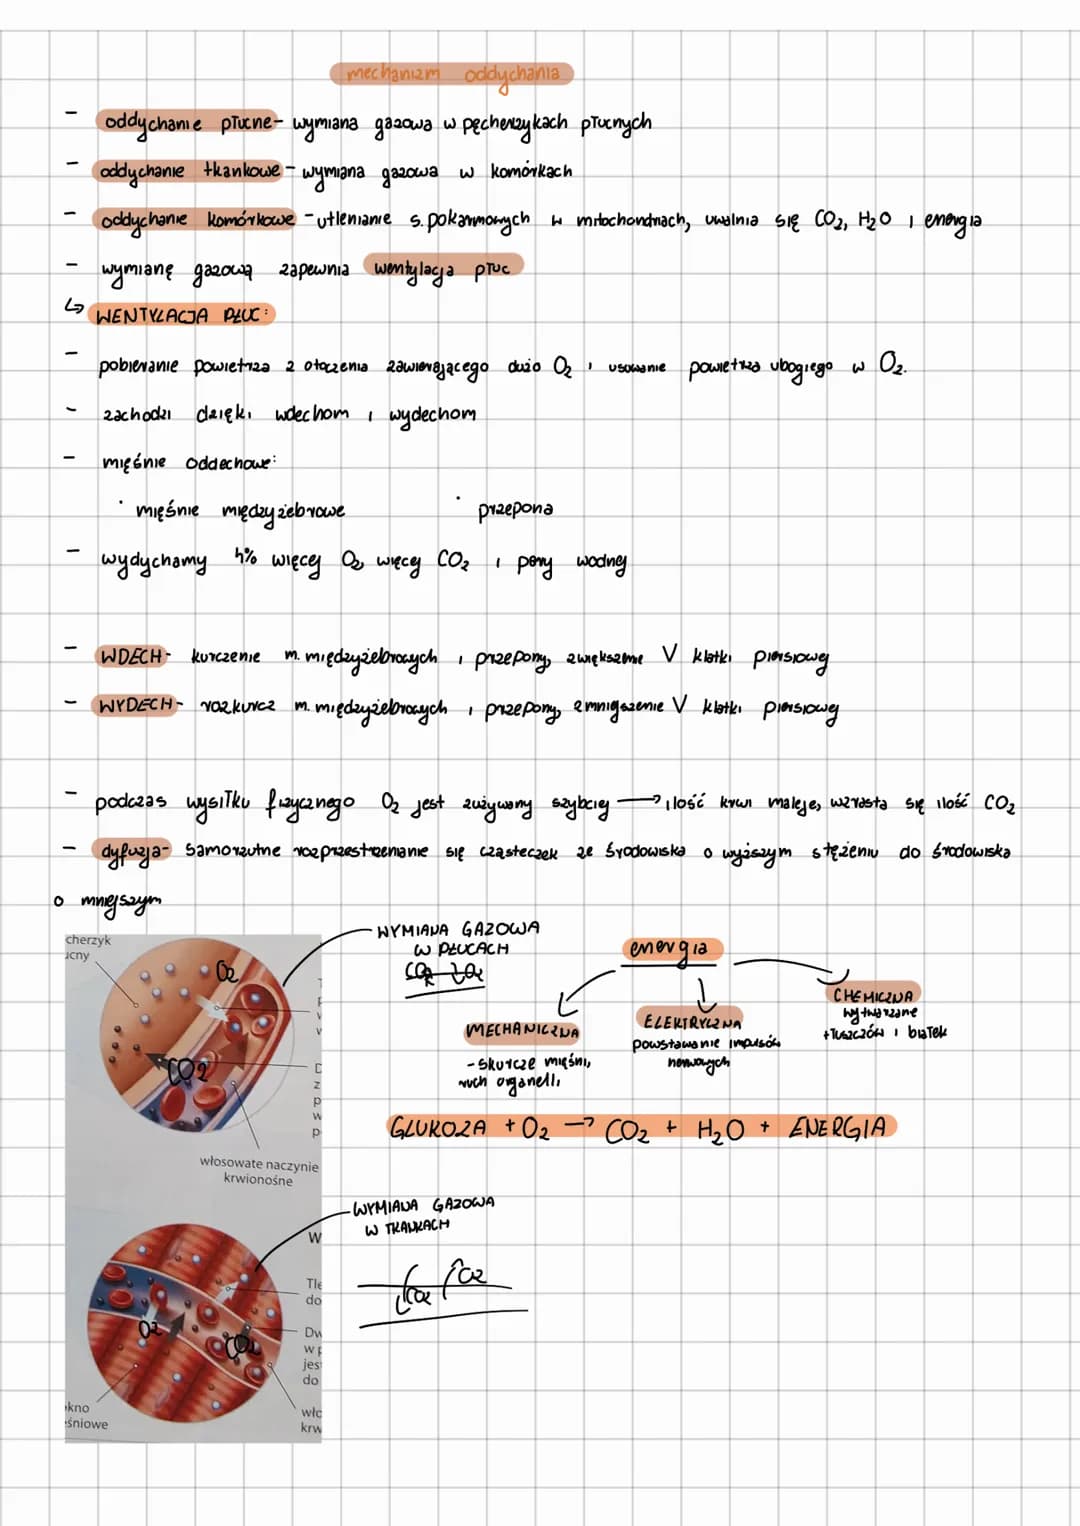 mechanizm oddychania
- oddychanie płucne- wymiana gazowa w pęcherzykach płucnych
- oddychanie tkankowe - wymiana gazowa w komórkach
- oddychanie komórkowe - utlenianie s. pokarmowych w mitochondriach, uwalnia się CO2, H2O i energia
- wymianę gazową zapewnia wentylacja płuc
↳ WENTYLACJA PŁUC:
- pobieranie powietrza z otoczenia zawierającego dużo O2 i usuwanie powietrza ubogiego w O2.
- zachodzi dzięki wdechom i wydechom
- mięśnie oddechowe:
· mięśnie międzyżebrowe · przepona
- wydychamy 4% więcej O2, więcej CO2 i pary wodnej
- WDECH- kurczenie m. międzyżebrowych i przepony, zwiększenie V klatki piersiowej
- WYDECH- rozkurcz m. międzyżebrowych i przepony, zmniejszenie V klatki piersiowej
- podczas wysiłku fizycznego O2 jest zużywany szybciej → ilość krwi maleje, wzrasta się ilość CO2
- dyfuzja- samorzutne rozprzestrzenianie się cząsteczek ze środowiska o wyższym stężeniu do środowiska
o mniejszym
cherzyk
ucny
O2
CO2
włosowate naczynie
krwionośne
WYMIANA GAZOWA
W PŁUCACH
energia
MECHANICZNA
- skurcze mięśni,
ruch organelli
ELEKTRYCZNA
powstawanie impulsów
nerwowych
CHEMICZNA
wytwarzanie
tłuszczów i białek
GLUKOZA + O2 → CO2 + H2O + ENERGIA
WYMIANA GAZOWA
W TKANKACH
O2
CO2
W
Tle
do
Dw
w p
jes
do
wło
krw
kno
eśniowe